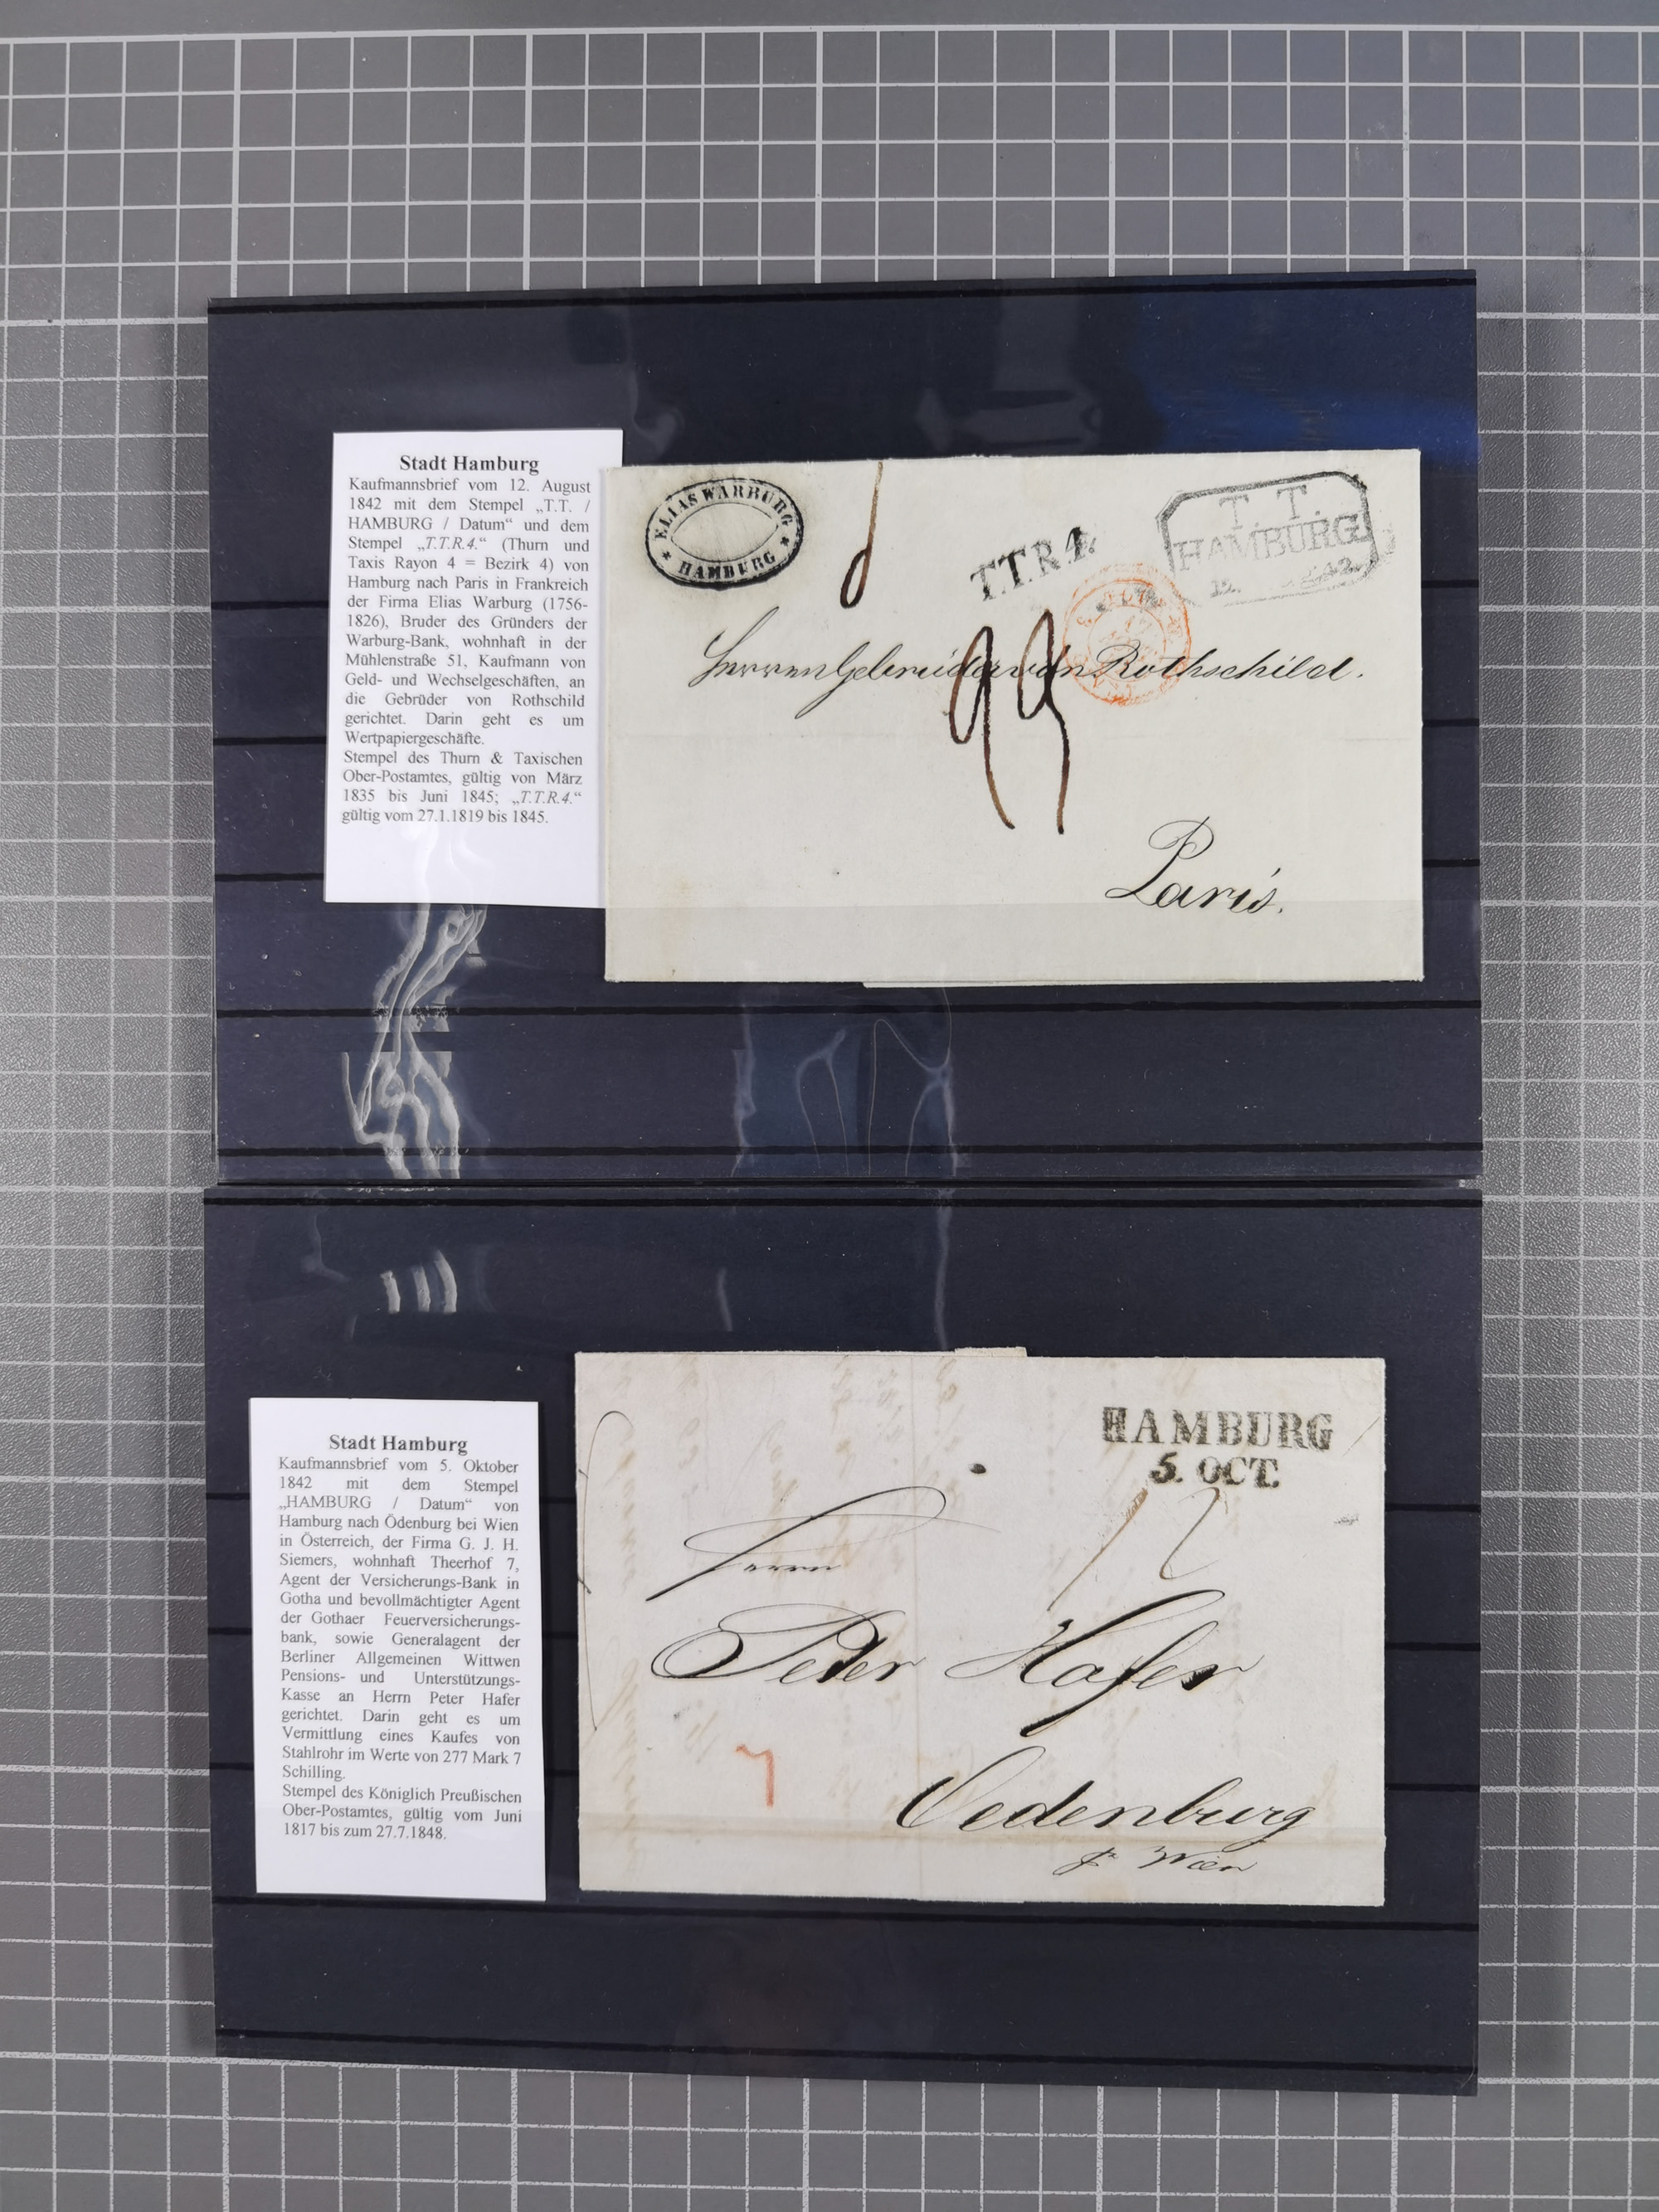 Stadt Hamburg
Kaufmannsbrief vom 12. August
1842 mit dem Stempel „T.T. /
HAMBURG / Datum“ und dem
Stempel „T.T.R.4.“ (Thurn und
Taxis Rayon 4 = Bezirk 4) von
Hamburg nach Paris in Frankreich
der Firma Elias Warburg (1756-
1826), Bruder des Gründers der
Warburg-Bank, wohnhaft in der
Mühlenstraße 51, Kaufmann von
Geld- und Wechselgeschäften, an
die Gebrüder von Rothschild
gerichtet. Darin geht es um
Wertpapiergeschäfte.
Stempel des Thurn & Taxischen
Ober-Postamtes, gültig von März
1835 bis Juni 1845; „T.T.R.4.“
gültig vom 27.1.1819 bis 1845.
ELIAS WARBURG
HAMBURG
T.T.R.4.
T. T.
HAMBURG.
12.
Herren Gebrüder von Rothschild.
Paris.
Stadt Hamburg
Kaufmannsbrief vom 5. Oktober
1842 mit dem Stempel
„HAMBURG / Datum“ von
Hamburg nach Ödenburg bei Wien
in Österreich, der Firma G. J. H.
Siemers, wohnhaft Theerhof 7,
Agent der Versicherungs-Bank in
Gotha und bevollmächtigter Agent
der Gothaer Feuerversicherungs-
bank, sowie Generalagent der
Berliner Allgemeinen Wittwen
Pensions- und Unterstützungs-
Kasse an Herrn Peter Hafer
gerichtet. Darin geht es um
Vermittlung eines Kaufes von
Stahlrohr im Werte von 277 Mark 7
Schilling.
Stempel des Königlich Preußischen
Ober-Postamtes, gültig vom Juni
1817 bis zum 27.7.1848.
HAMBURG
5. OCT.
12
Herrn
Peter Hafer
7
Oedenburg
pr Wien